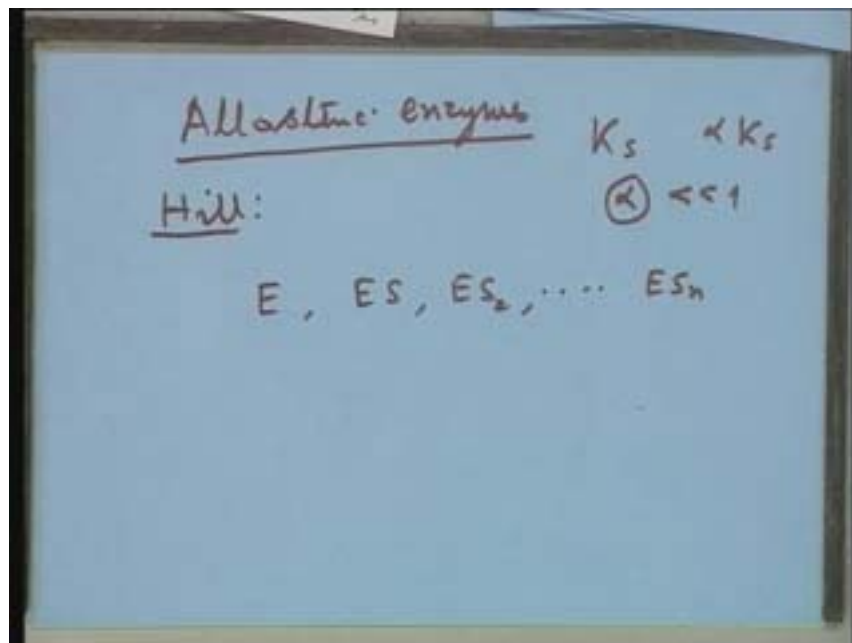 Allosteric enzymes
Ks αKs
Hill: α << 1
E, ES, ES₂, .... ESn